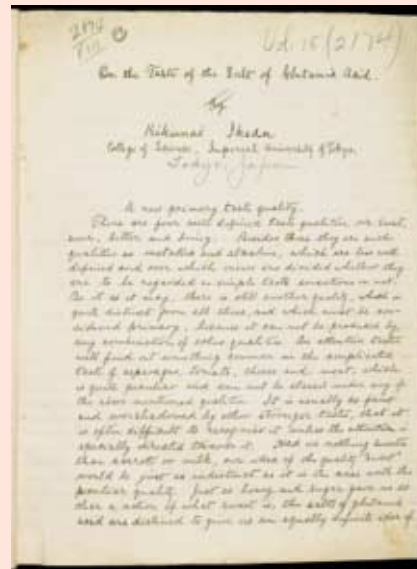 2174
Vol. 15 (2174)
On the Taste of the Salt of Glutamic Acid.
By
Kikunae Ikeda
College of Science, Imperial University of Tokyo,
Tokyo Japan
A new primary taste quality.
There are four well defined taste qualities, viz sweet,
sour, bitter and briny. Besides these they are such
qualities as metallic and alkaline, which are less well
defined and over which views are divided whether they
are to be regarded as simple taste sensations or not.
Be it as it may, there is still another quality, which is
quite distinct from all these, and which must be con-
sidered primary, because it can not be produced by
any combination of other qualities. An attentive taster
will find out something common in the complicated
taste of asparagus, tomato, cheese and meat, which
is quite peculiar and can not be classed under any of
the above mentioned qualities. It is usually so faint
and overshadowed by other stronger tastes, that it
is often difficult to recognise it unless the attention is
specially directed towards it. Had we nothing sweeter
than carrots or milk, our idea of the quality "sweet"
would be just as indistinct as it is the case with this
peculiar quality. Just as honey and sugar gave us so
clear a notion of what sweet is, the salts of glutamic
acid are destined to give us an equally definite idea of